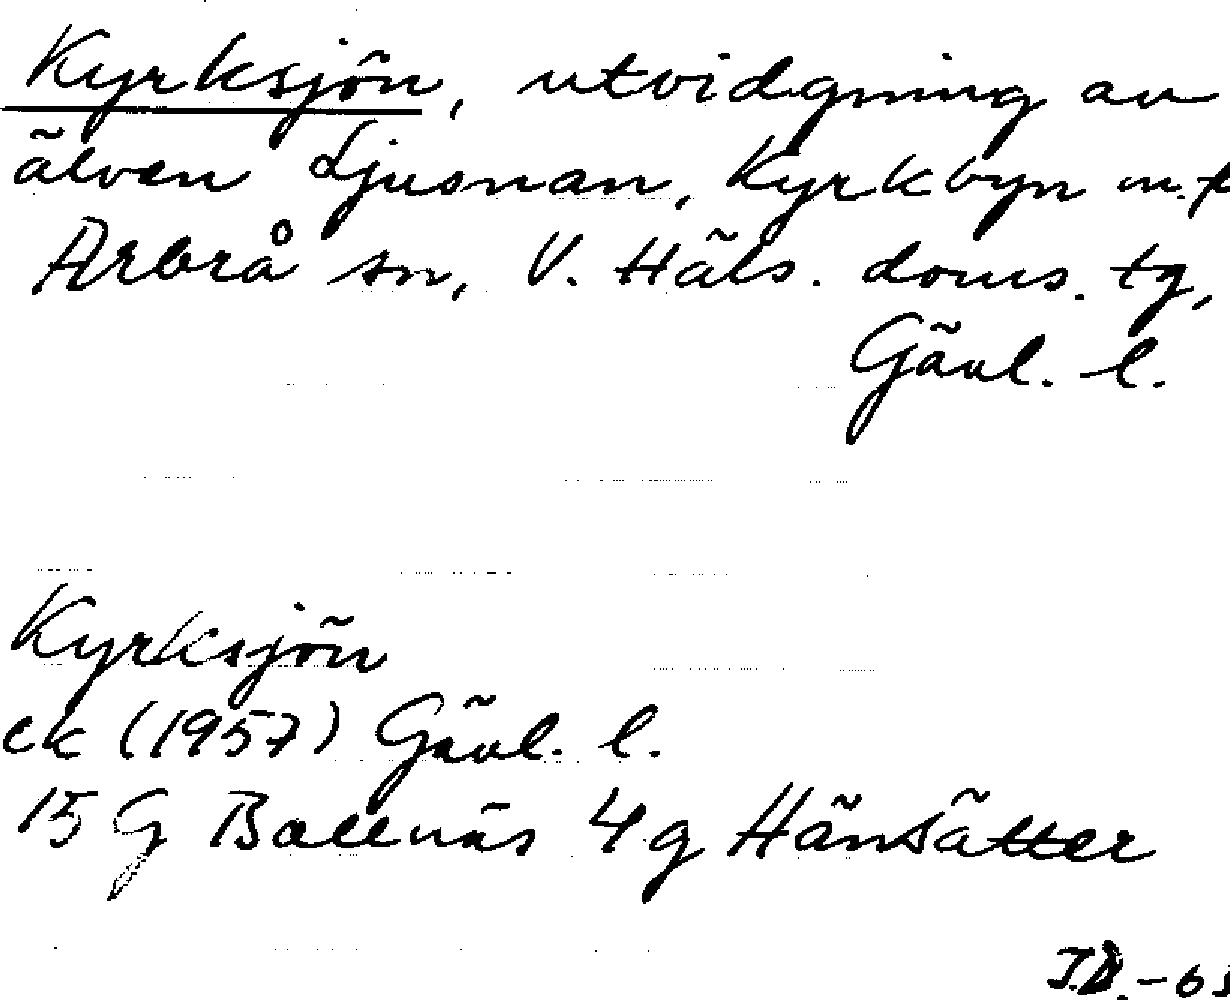 Kyrksjön, utvidgning av
älven Ljusnan, Kyrkbyn m.fl
Arbrå sn, V. Häls. doms. tg,
Gävl. l.
Kyrksjön
ek (1957) Gävl. l.
15 G Bollnäs 4 g Hänsätter